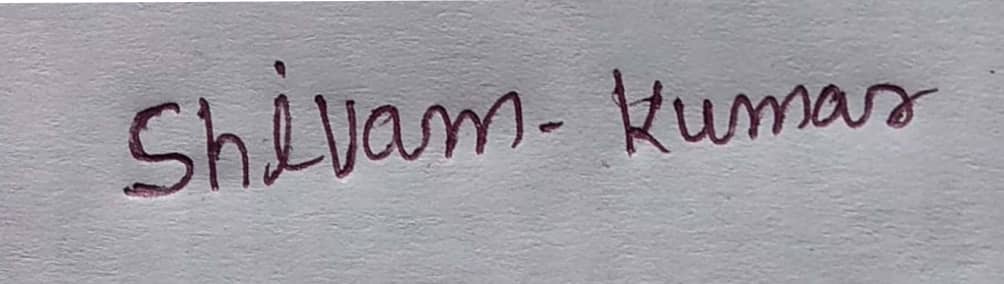 Shivam - Kumar